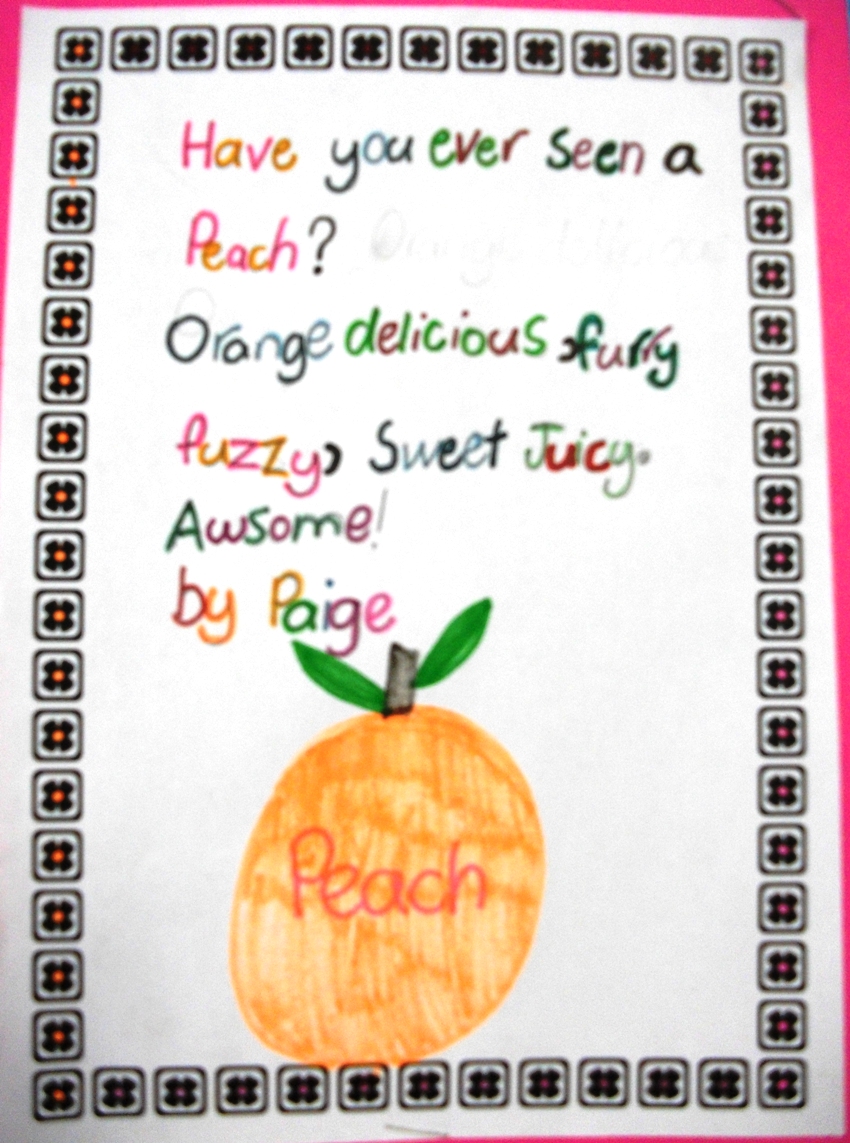 Have you ever seen a
Peach?
Orange delicious, furry
fuzzy, Sweet Juicy.
Awsome!
by Paige
Peach